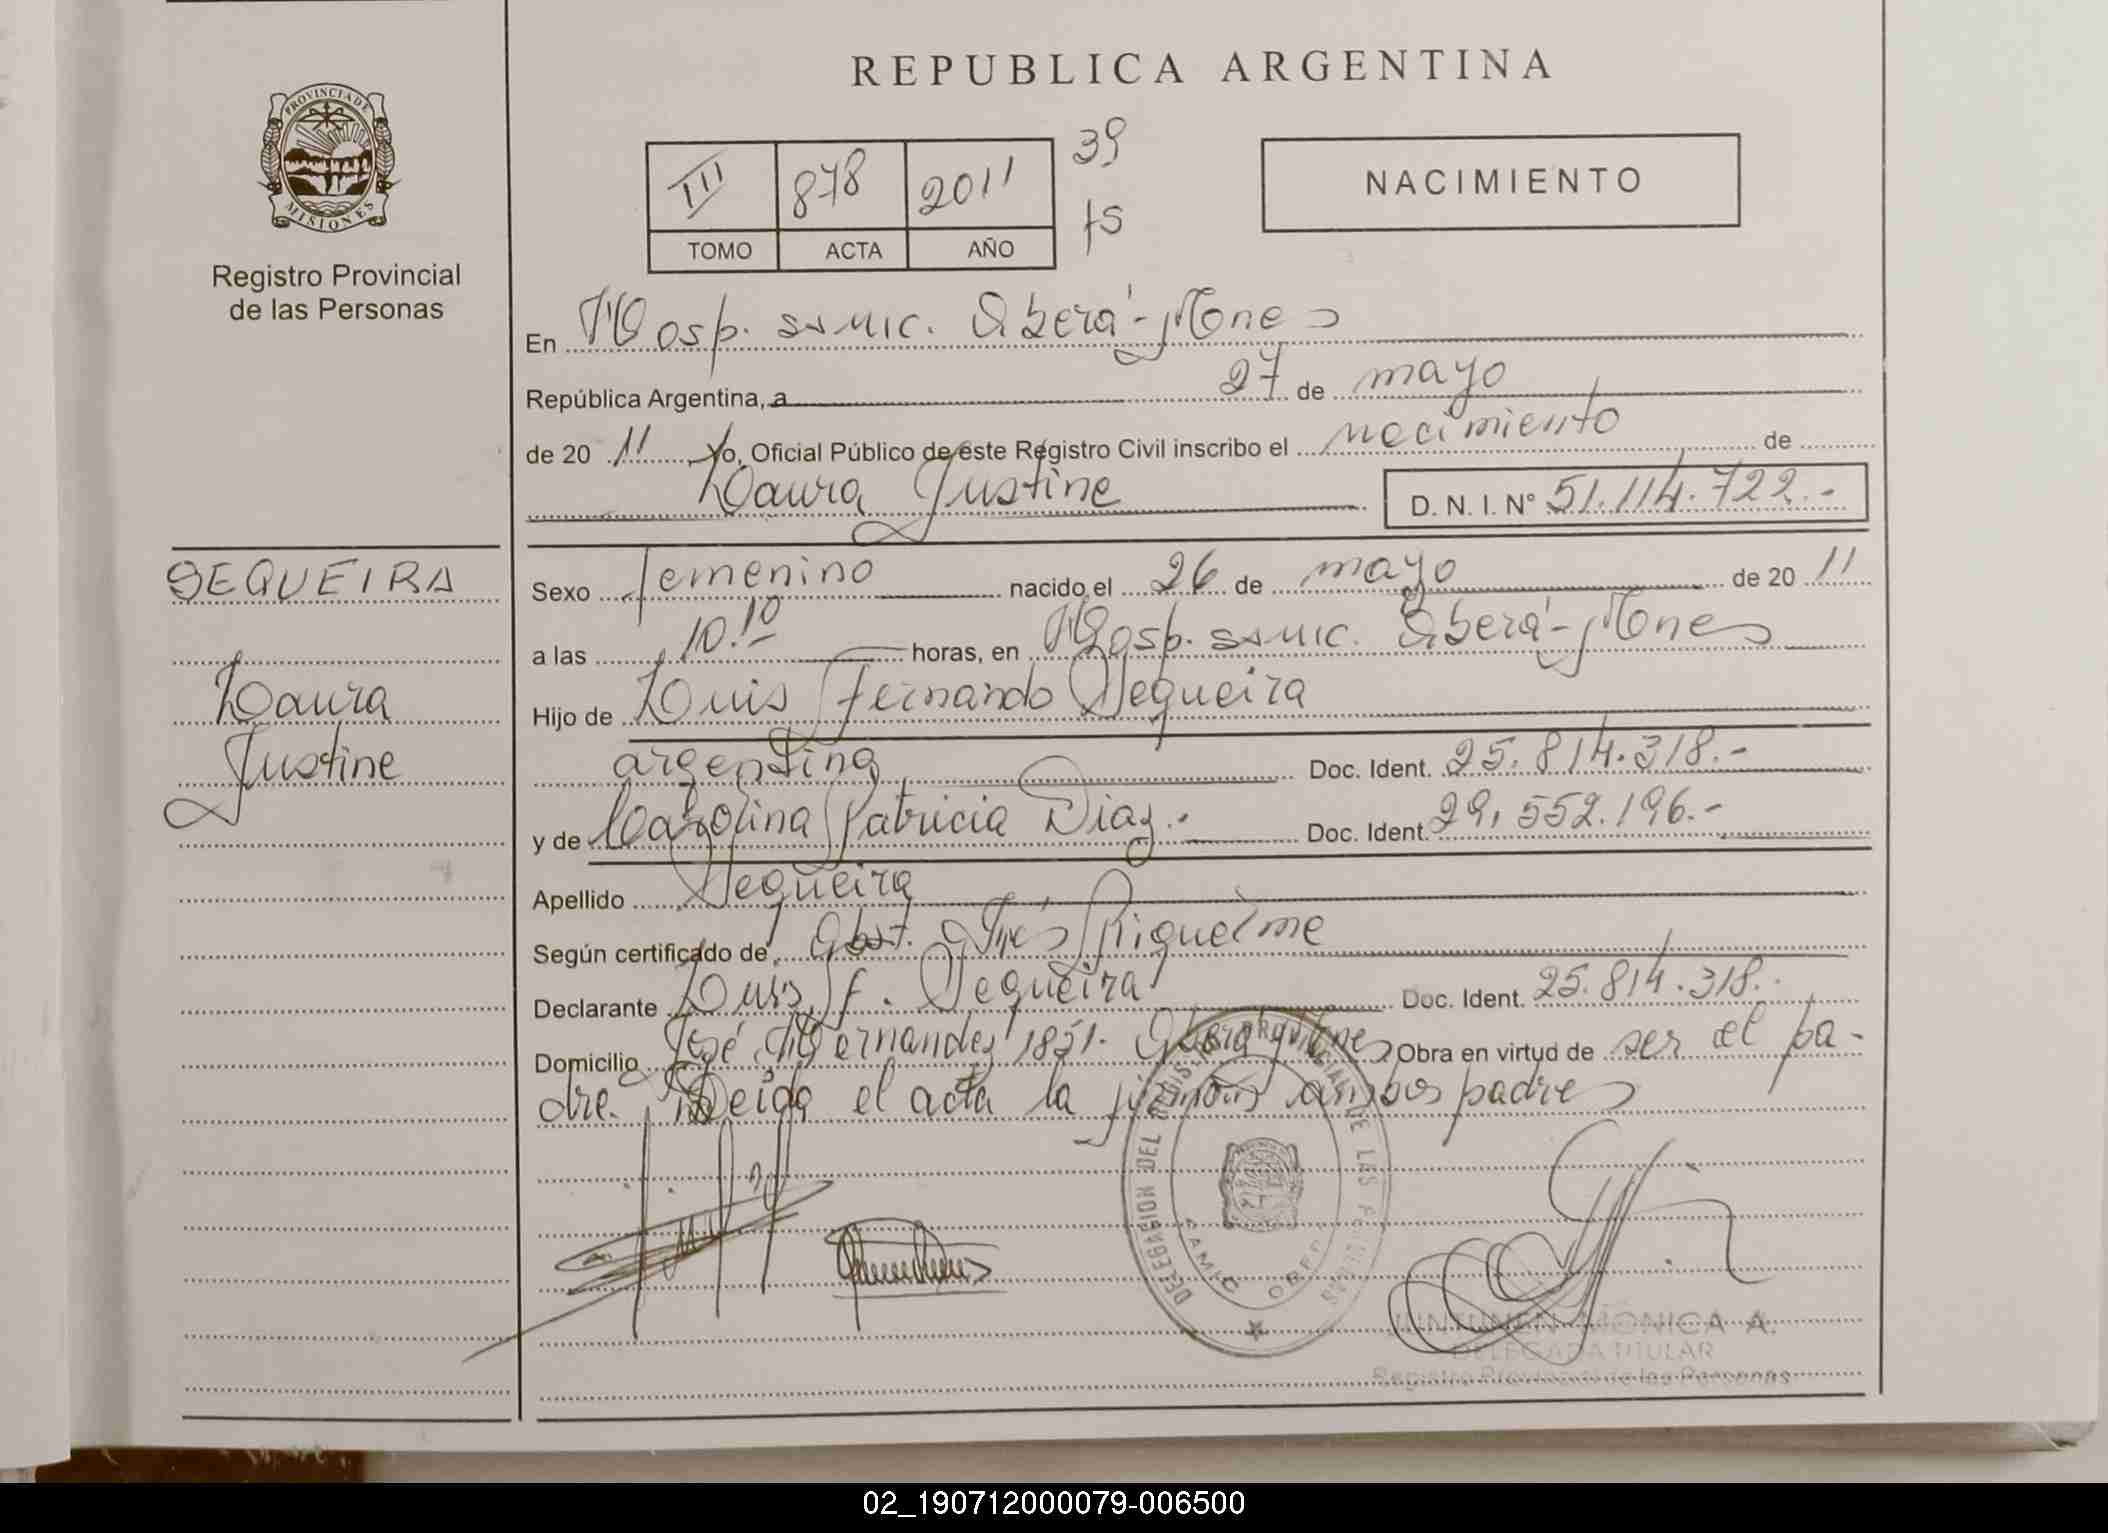 REPUBLICA ARGENTINA
PROVINCIA DE MISIONES
Registro Provincial
de las Personas
III 878 2011 39
TOMO ACTA AÑO
NACIMIENTO
En Hosp. Samic. Oberá - Mnes
República Argentina, a 27 de mayo
de 20 11 Yo, Oficial Público de este Registro Civil inscribo el nacimiento de
Laura Justine D. N. I. Nº 51.114.722.-
SEQUEIRA
Laura
Justine
Sexo femenino nacido el 26 de mayo de 20 11
a las 10.10 horas, en Hosp. Samic. Oberá - Mnes
Hijo de Luis Fernando Sequeira
argentina Doc. Ident. 25.814.318.-
y de Carolina Patricia Diaz.- Doc. Ident. 29.552.196.-
Apellido Sequeira
Según certificado de Obst. Inés Riquelme
Declarante Luis F. Sequeira Doc. Ident. 25.814.318.-
Domicilio José Hernandez 1851. Oberá Mnes Obra en virtud de ser el pa-
dre. Leida el acta la firman ambos padres
DELEGACION DEL REGISTRO PROVINCIAL DE LAS PERSONAS
SAMIC OBERA
JUNTUNEN MONICA A.
DELEGADA TITULAR
Registro Provincial de las Personas
02_190712000079-006500